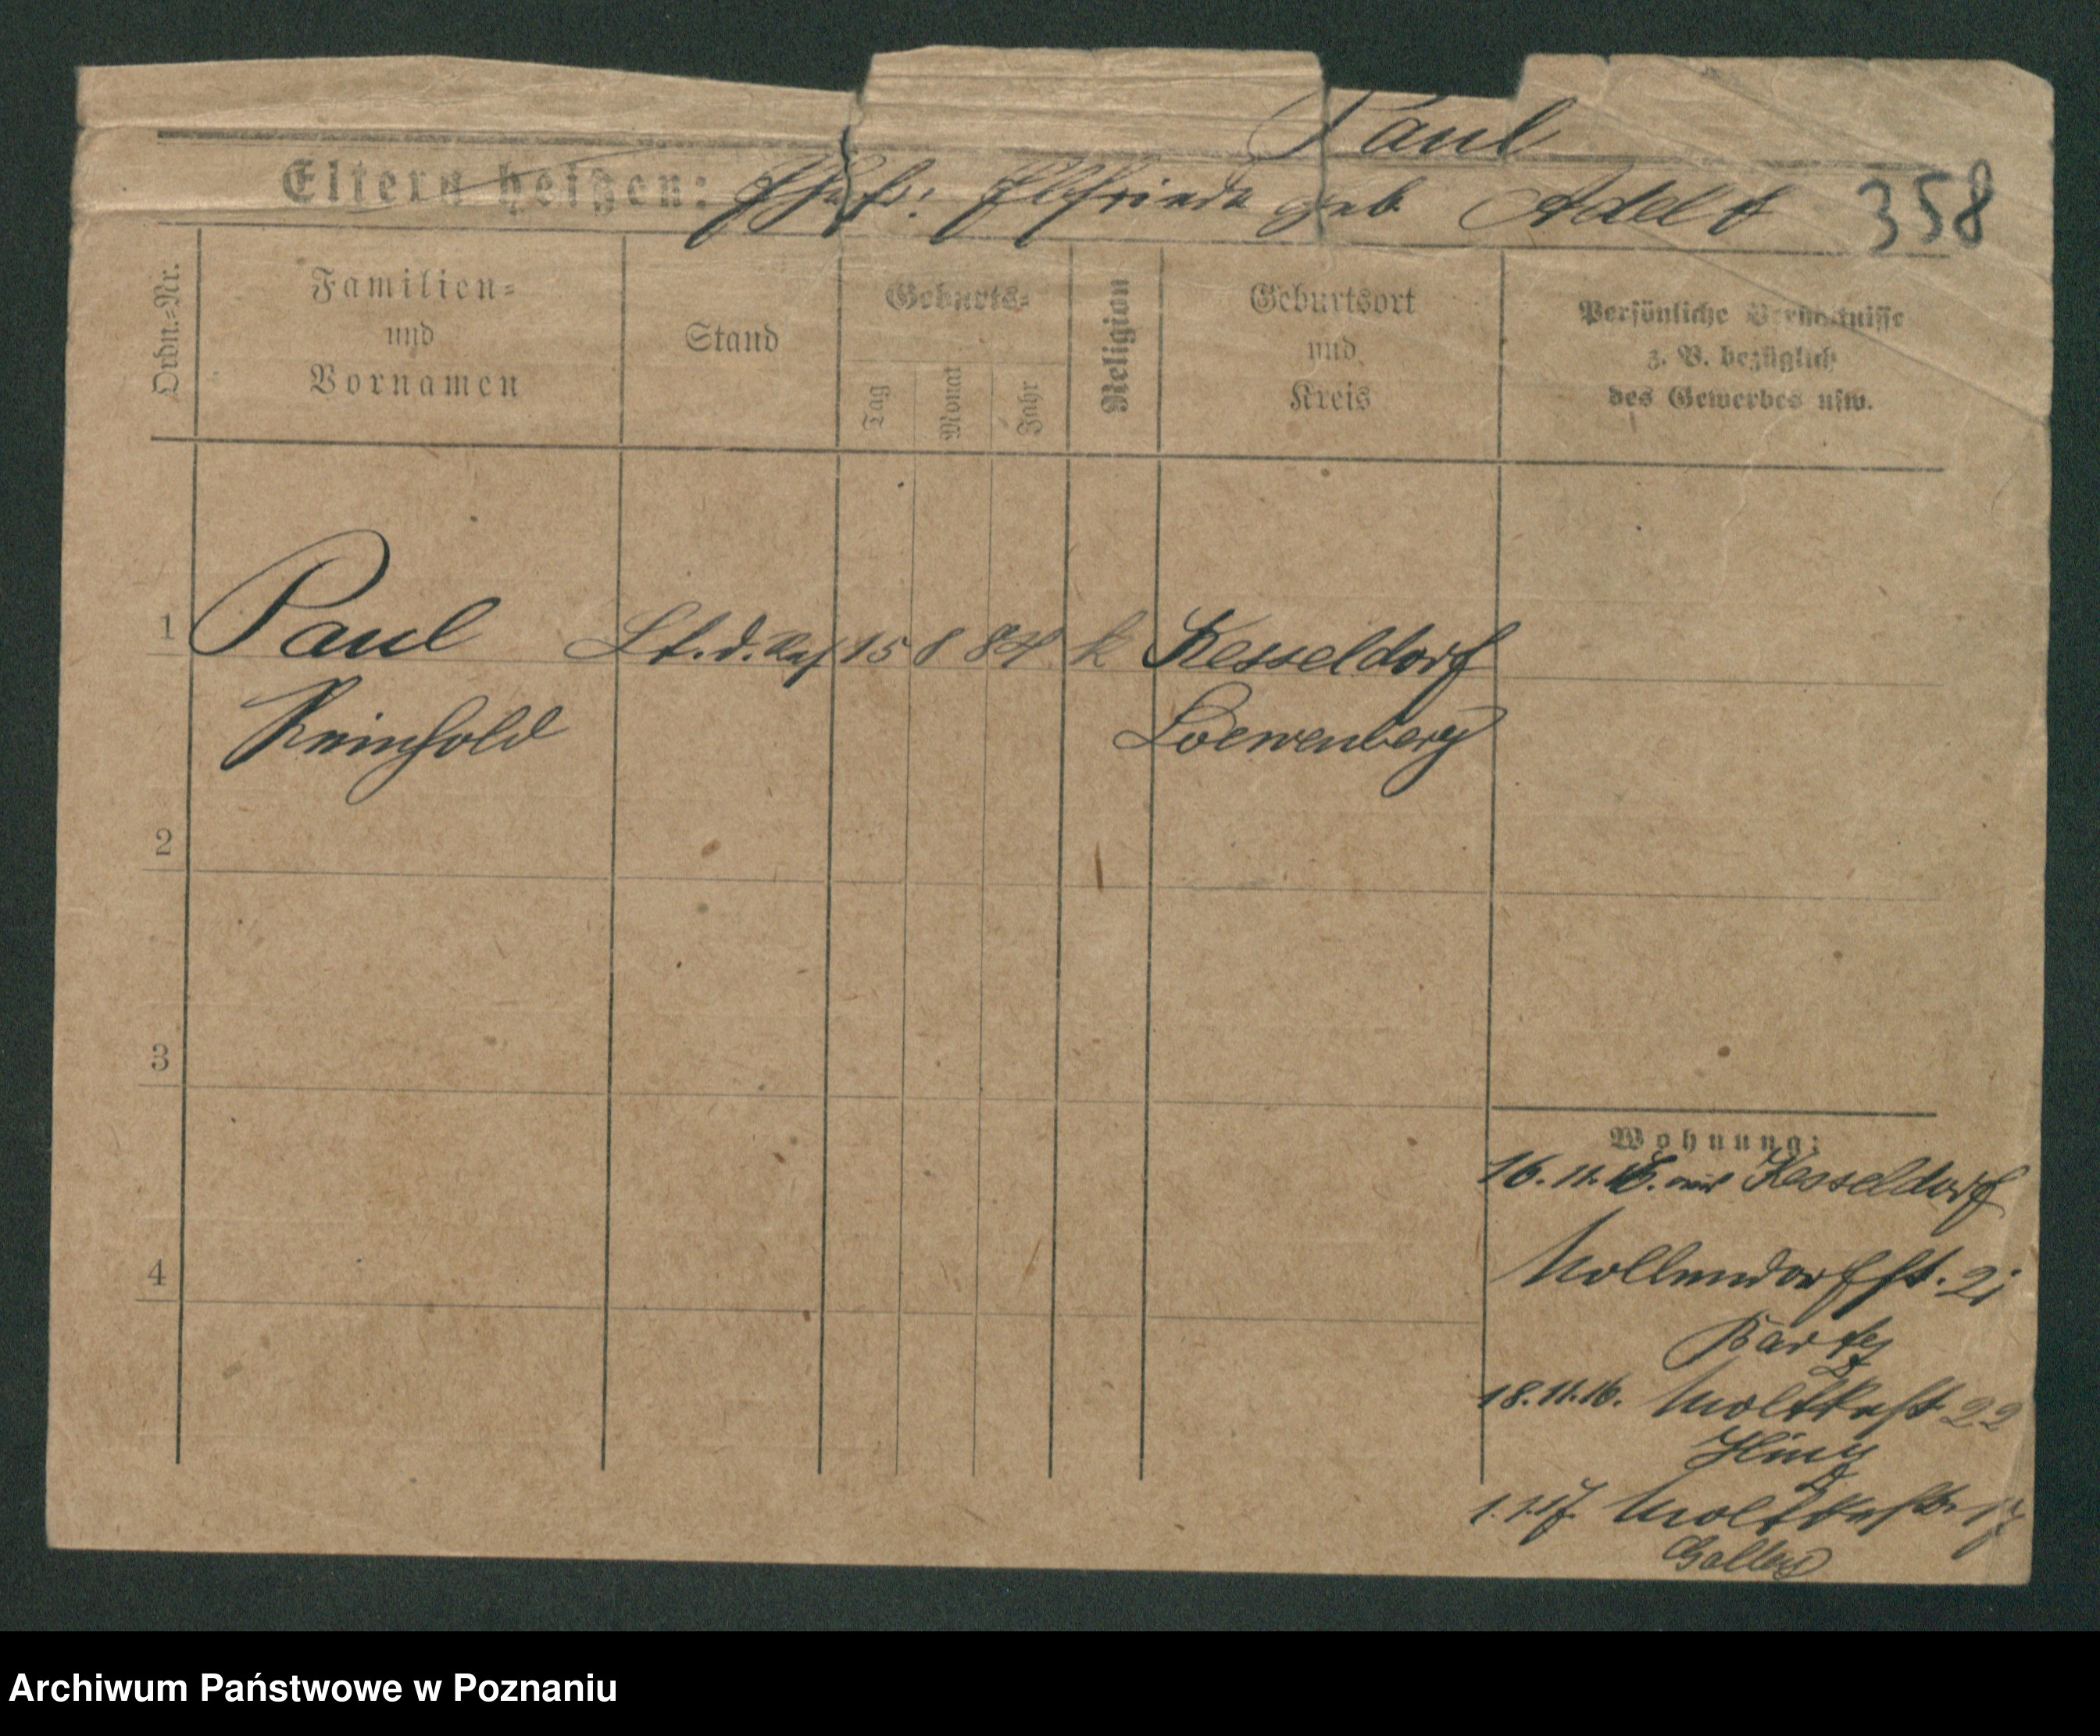 Paul
Eltern heißen: Ehefr: Elfriede geb. Adelt 358
Ordn.-Nr.
Familien-
und
Vornamen
Stand
Geburts-
Tag
Monat
Jahr
Religion
Geburtsort
und
Kreis
Persönliche Verhältnisse
z. B. bezüglich
des Gewerbes usw.
1 Paul Lt. d. Res 15 8 84 k Kesseldorf
Reinhold Loewenberg
2
3
4
Wohnung:
16.11.16. aus Kesseldorf
Möllendorfst. 21
18.11.16. Moltkest 22
1.1.17. Moltkestr. 17
Archiwum Państwowe w Poznaniu